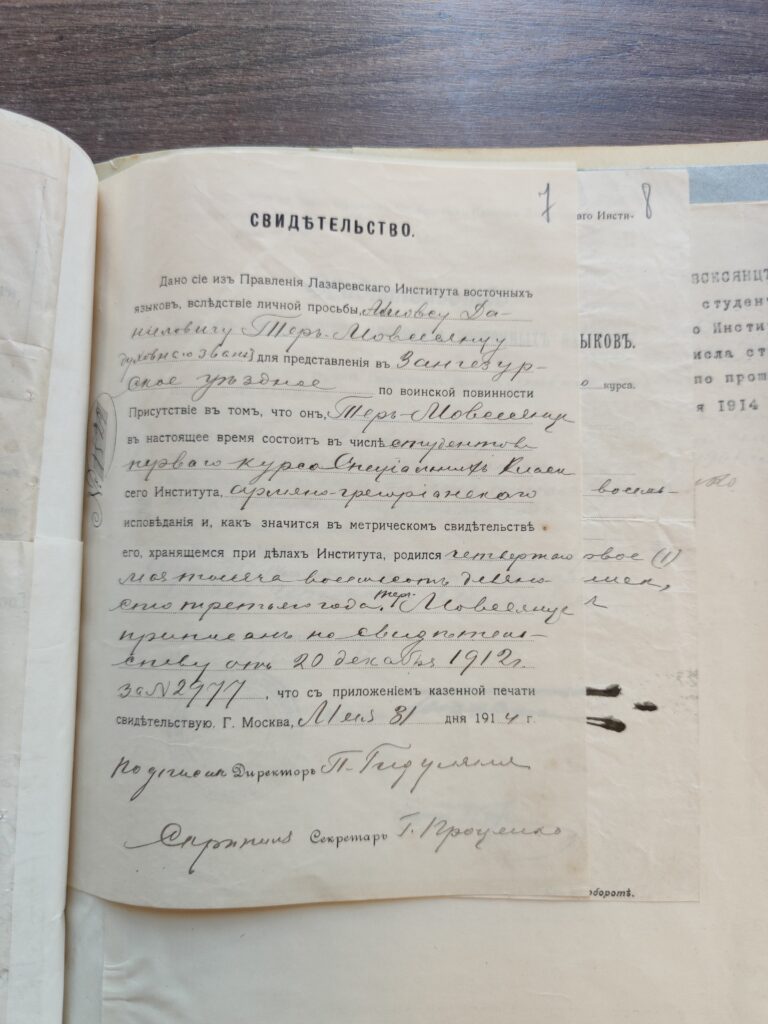 7
СВИДѢТЕЛЬСТВО.
Дано сіе изъ Правленія Лазаревскаго Института восточныхъ
языковъ, вслѣдствіе личной просьбы, Мовсу Да-
ниловичу Теръ-Мовсесянцу
духовнаго званія) для представленія въ Зангезур-
ское уѣздное по воинской повинности
Присутствіе въ томъ, что онъ, Теръ-Мовсесянцъ
въ настоящее время состоитъ въ числѣ студентовъ
перваго курса Спеціальныхъ Классовъ
сего Института, армяно-грегоріанскаго
исповѣданія и, какъ значится въ метрическомъ свидѣтельствѣ
его, хранящемся при дѣлахъ Института, родился четвертаго
мая тысяча восемьсотъ девяно-
сто третьяго года. Теръ-Мовсесянцъ
приписанъ по свидѣтель-
ству отъ 20 декабря 1912 г.
за № 2977, что съ приложеніемъ казенной печати
свидѣтельствую. Г. Москва, Мая 31 дня 1914 г.
Подписали Директоръ П. Гидуляновъ
Секретарь Г. Проценко
8
аго Инсти-
ЫКОВЪ.
курса.
восемь-
(1)
оборотѣ.
ВСЕСЯНЦЪ
студен
о Инсти
исла ст
по прош
я 1914